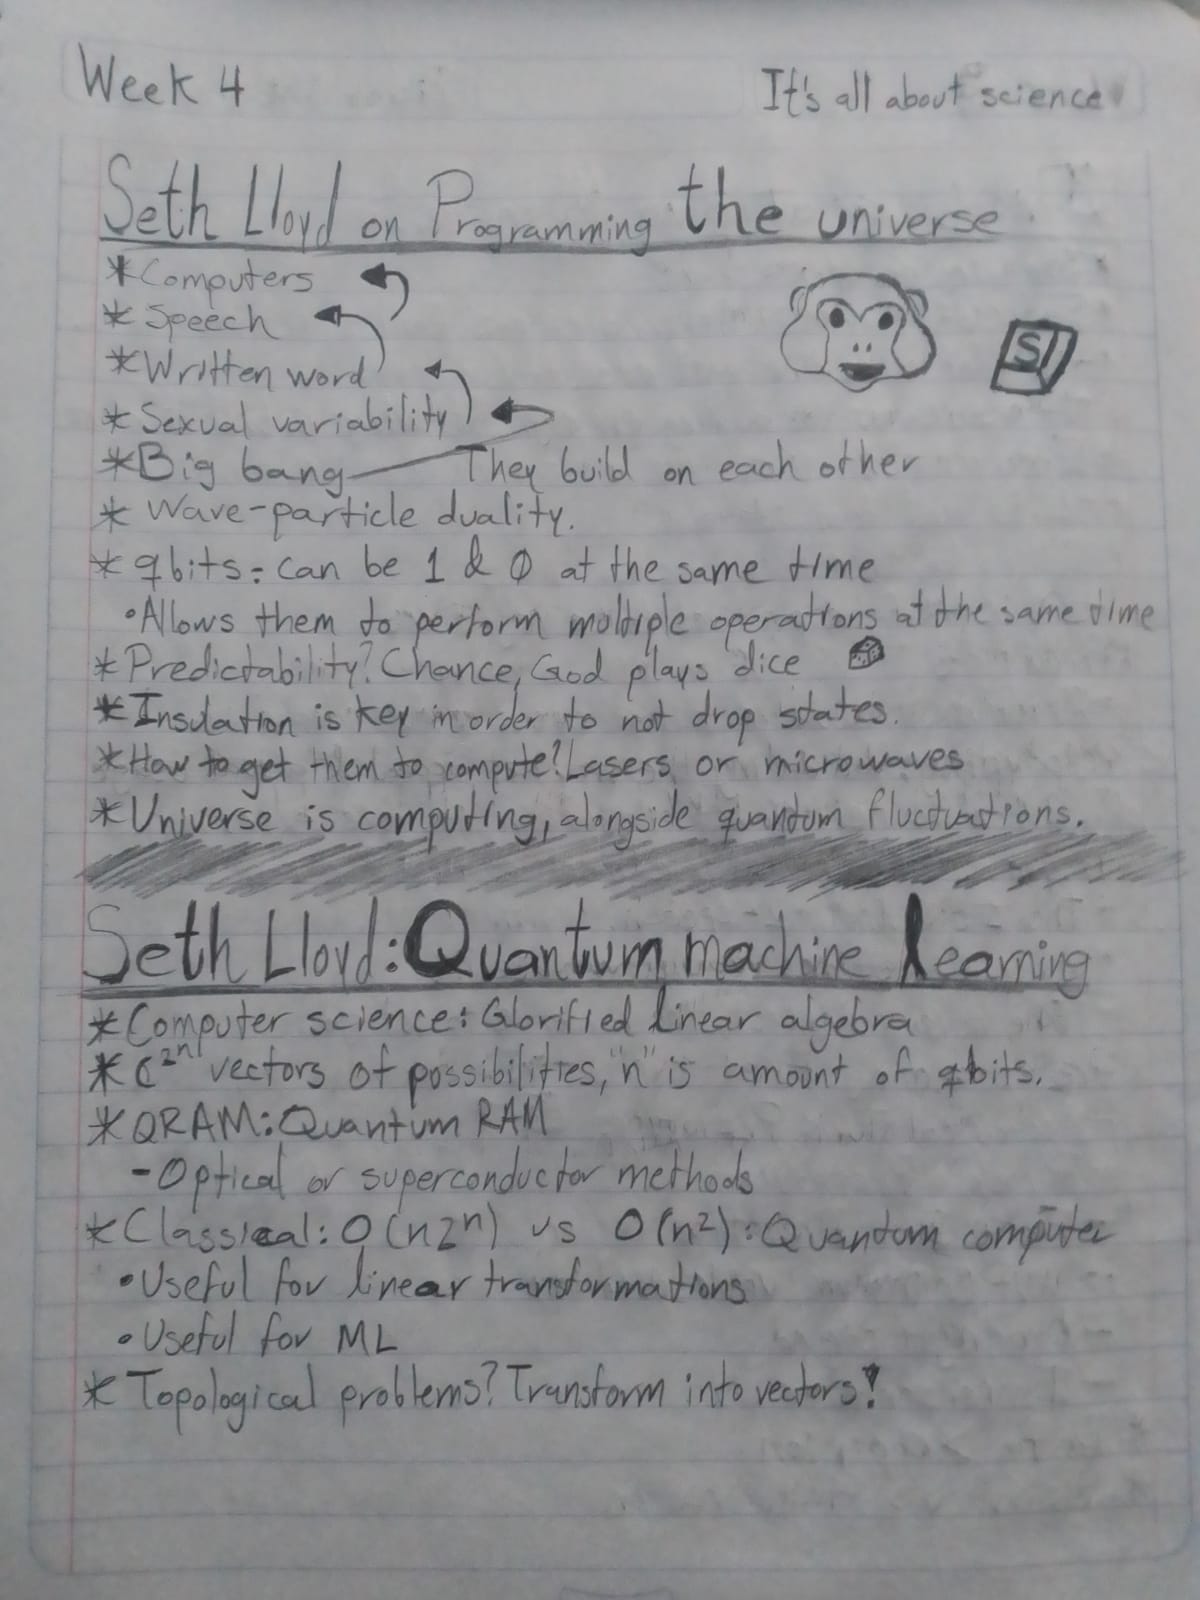 Week 4
It's all about science
Seth Lloyd on Programming the universe
*Computers
*Speech
*Written word
*Sexual variability
*Big bang They build on each other
*Wave-particle duality.
*qbits: can be 1 & 0 at the same time
•Allows them to perform multiple operations at the same time
*Predictability? Chance, God plays dice
*Insulation is key in order to not drop states.
*How to get them to compute? Lasers or microwaves
*Universe is computing, alongside quantum fluctuations.
S
Seth Lloyd: Quantum machine learning
*Computer science: Glorified linear algebra
*C²ⁿ vectors of possibilities, "n" is amount of qbits.
*QRAM: Quantum RAM
-Optical or superconductor methods
*Classical: O(n2ⁿ) vs O(n²): Quantum computer
•Useful for linear transformations
•Useful for ML
*Topological problems? Transform into vectors!